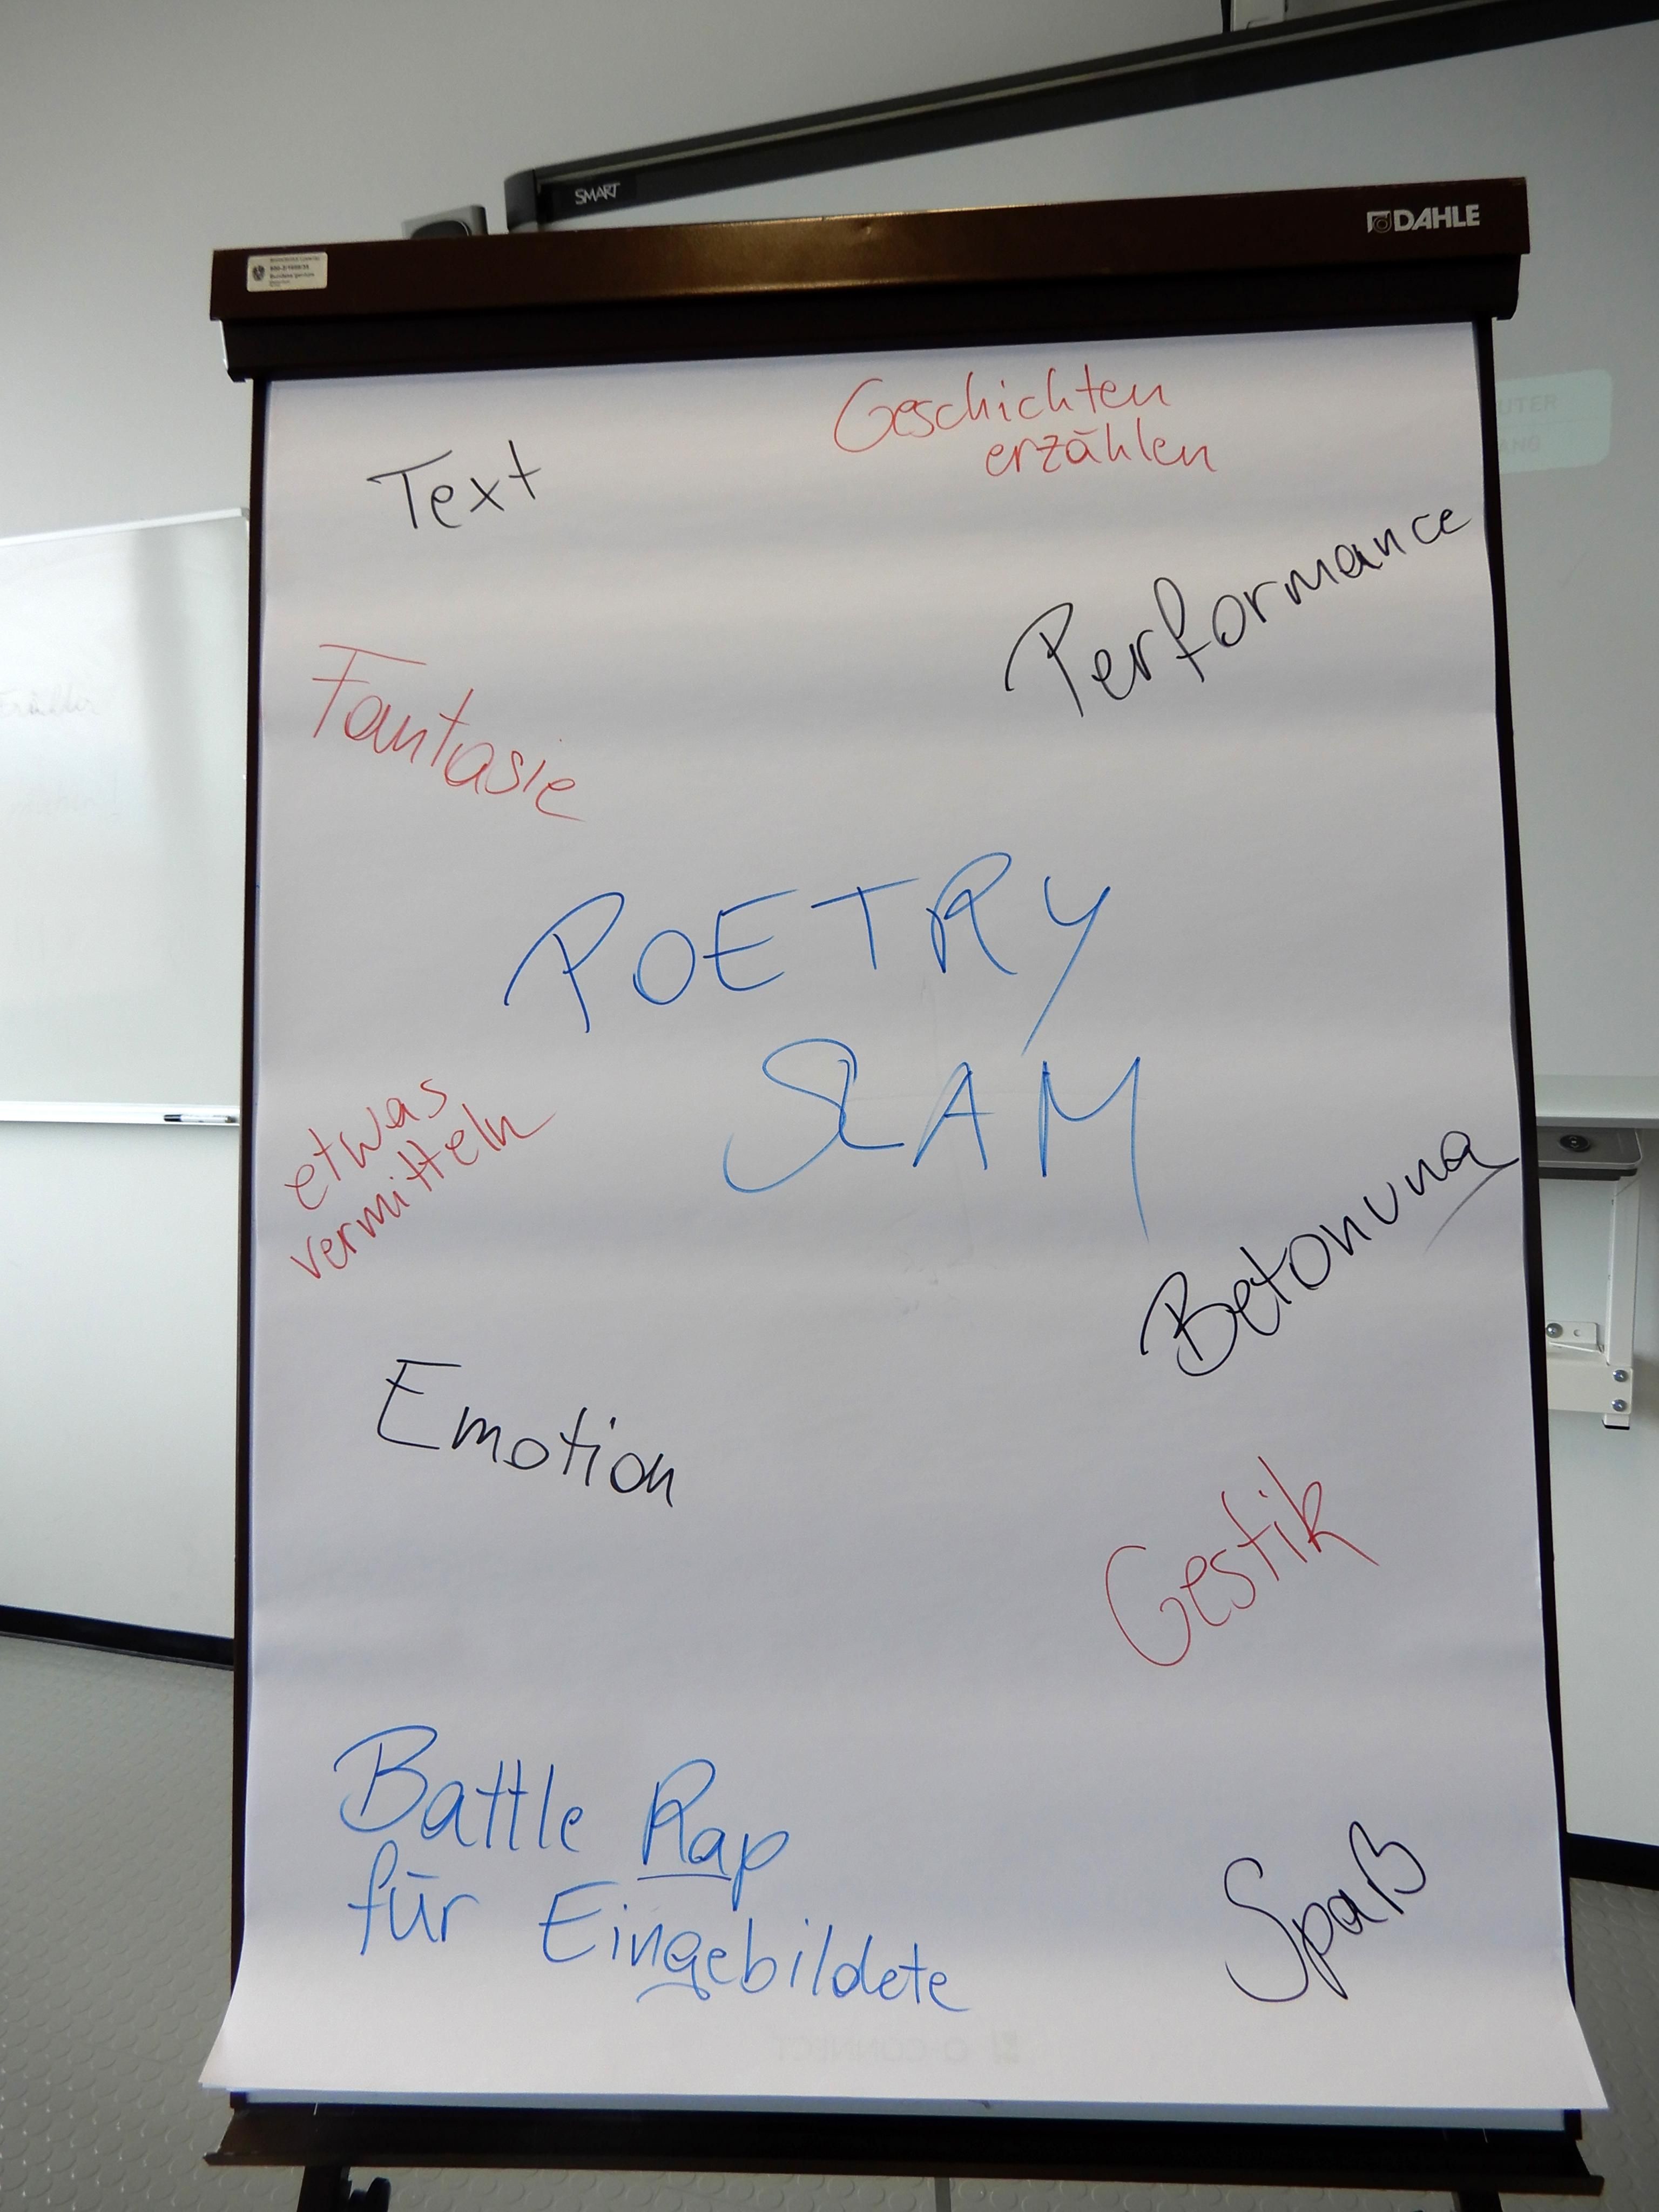 SMART
DAHLE
Geschichten
erzählen
Text
Performance
Fantasie
POETRY
SLAM
etwas
vermitteln
Betonung
Emotion
Gestik
Battle Rap
für Eingebildete
Spaß